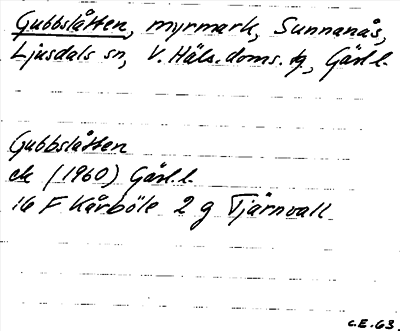 Gubbslåtten, myrmark, Sunnanås,
Ljusdals sn, V. Häls. doms. tg, Gävl. l.
Gubbslåtten
ek (1960) Gävl. l.
16 F Kårböle 2 g Tjärnvall
C.E. 63.